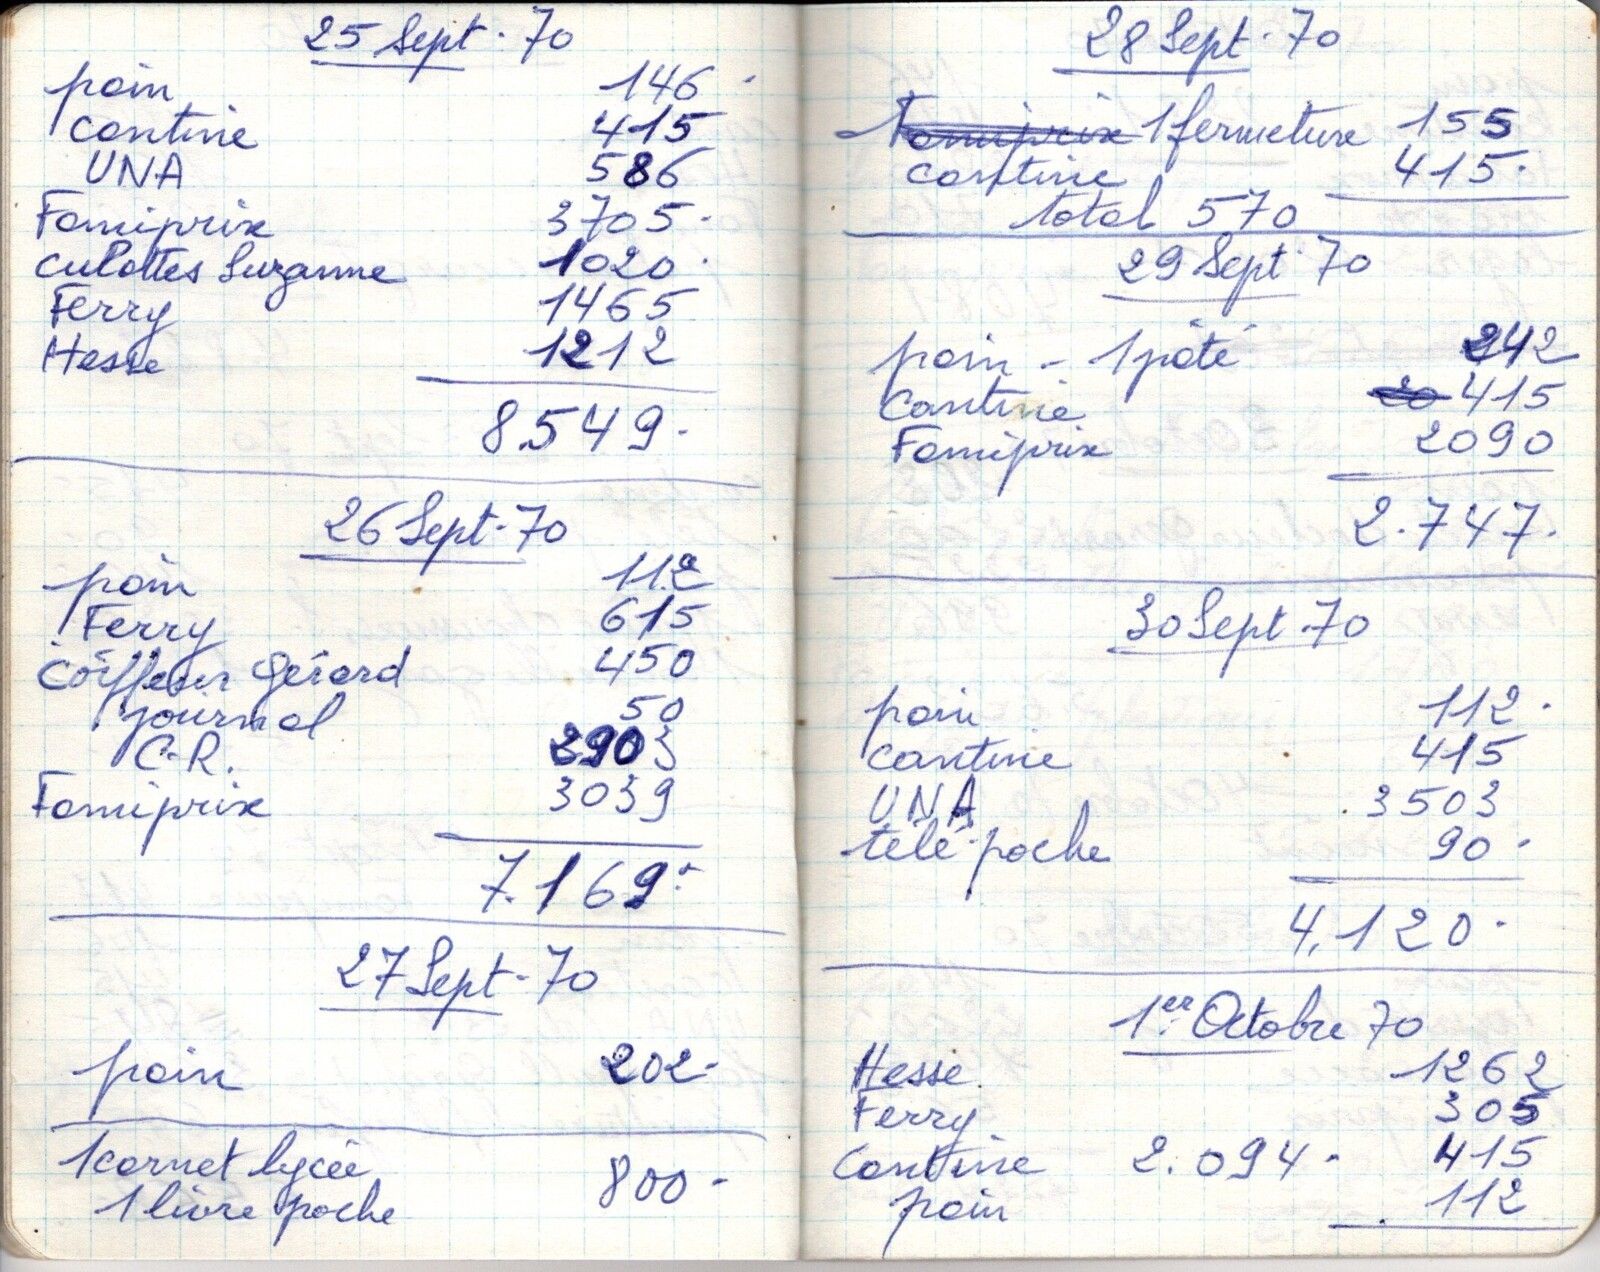 25 Sept. 70
pain 146.
cantine 415
UNA 586
Famiprix 3705.
culottes Suzanne 1020.
Ferry 1465
Hesse 1212
8.549.
26 Sept. 70
pain 112
Ferry 615
Coiffeur Gérard 450
journal 50
C.R. 2903
Famiprix 3039
7.169.
27 Sept. 70
pain 202.
1 carnet lycée
1 livre poche 800.
28 Sept. 70
Famiprix 1 fermeture 155
cantine 415.
total 570
29 Sept. 70
pain - 1 pâté 242
Cantine 20 415
Famiprix 2090
2.747.
30 Sept. 70
pain 112.
cantine 415
UNA 3503
télé-poche 90.
4.120.
1er Octobre 70
Hesse 1262
Ferry 305
Cantine 2.094. 415
pain 112